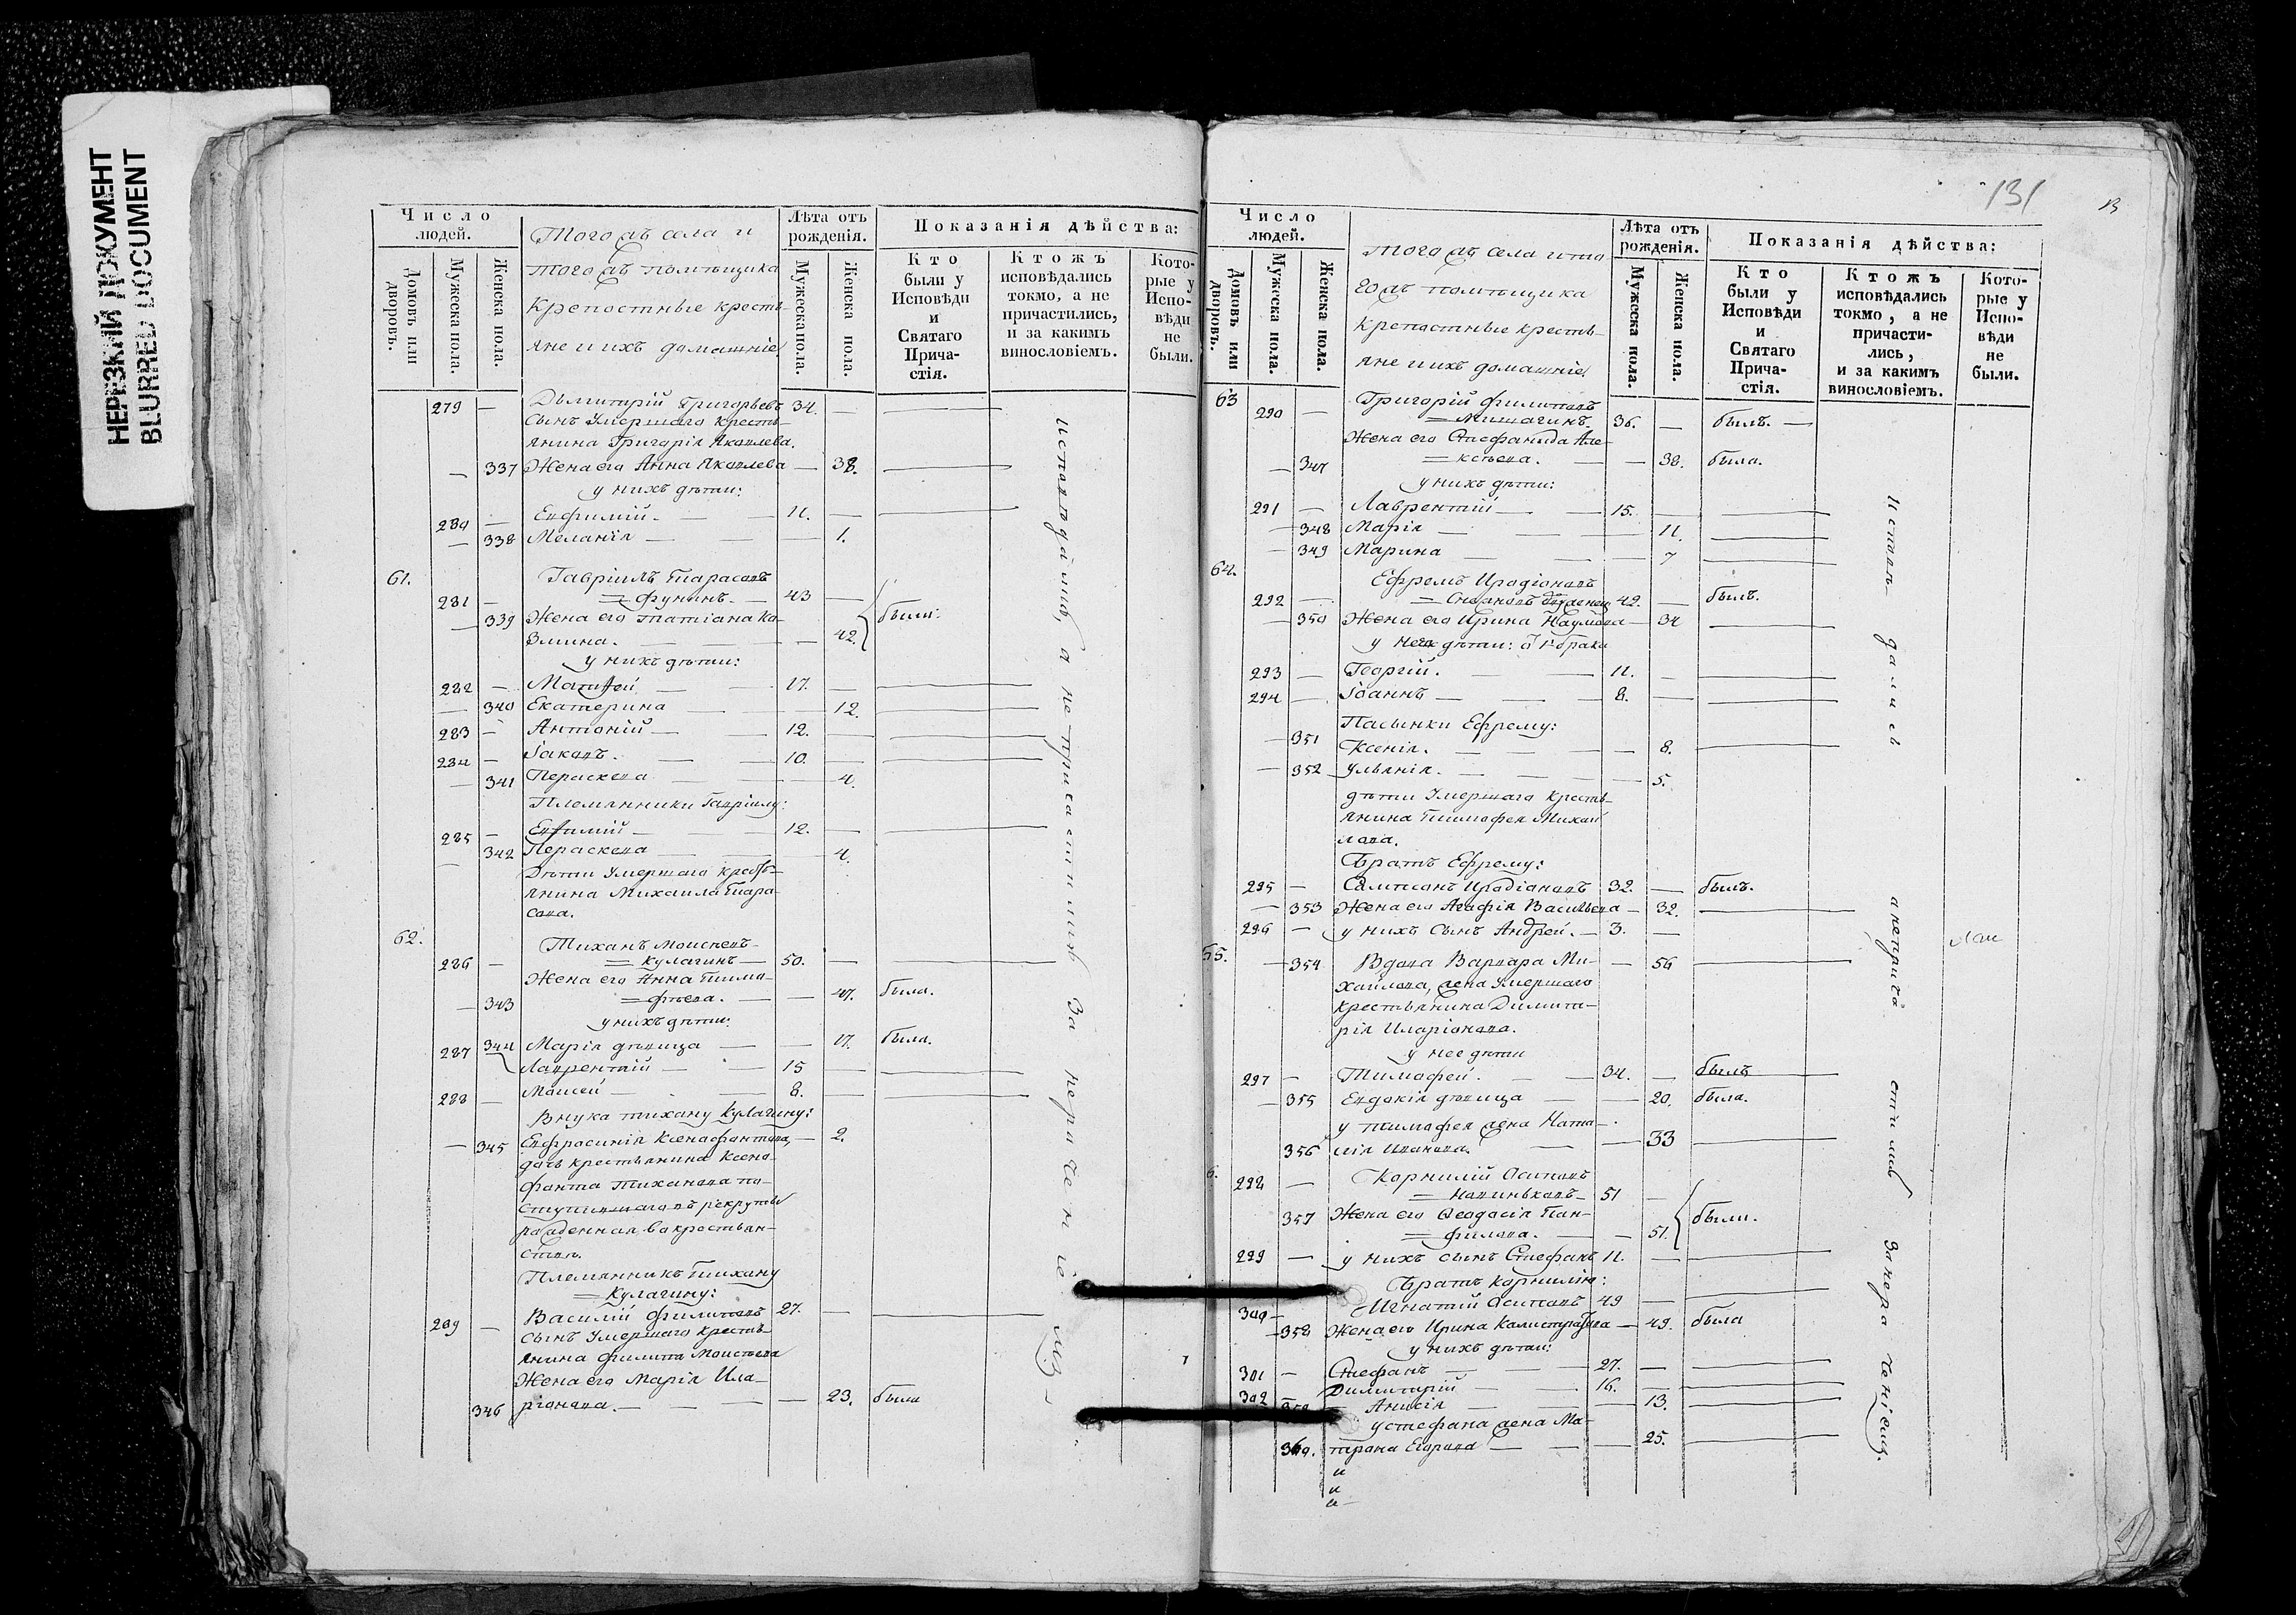 НЕРЕЗКИЙ ДОКУМЕНТ
BLURRED DOCUMENT
Число людей.
Домовъ или дворовъ.
Мужеска пола.
Женска пола.
Тогожъ села и
тогожъ помѣщика
крепостные кресть-
яне и ихъ домашніе
Лѣта отъ рожденія.
Мужеска пола.
Женска пола.
Показанія дѣйства:
Кто были у Исповѣди и Святаго Прича-стія.
Ктожъ исповѣдались токмо, а не причастились, и за какимъ винословіемъ.
Кото-рые у Испо-вѣди не были.
279 — Димитрій Григорьевъ 34. —
сынъ умершаго кресть-
янина Григорія Яковлева.
— 337 Жена его Анна Яковлева — 38.
у нихъ дѣти:
280 — Евфимій. — 11. —
— 338 Меланія — — 1.
61. Гавріилъ Тарасовъ
281 — = Фунинъ. — 43 —
— 339 Жена его Татіана Ко-
змина. — — 42. были.
у нихъ дѣти:
282 — Матѳей — 17. —
— 340 Екатерина — — 12.
283 — Антоній — 12. —
284 — Іаковъ. — 10. —
— 341 Параскева — — 4.
Племянники Гавріилу:
285 — Евфимій — 12. —
— 342 Параскева — — 4.
Дѣти умершаго кресть-
янина Михаила Тара-
сова.
62. Тихонъ Моисеевъ
286 — = Кулагинъ — 50. —
Жена его Анна Тимо-
— 343 = фѣева. — — 47. была.
у нихъ дѣти:
344 Марія дѣвица — — 17. была.
287 Лаврентій — 15 —
288 — Моисей — 8. —
Внука Тихону Кулагину:
— 345 Евфросинія Ксенофонтова, — 2.
дочь крестьянина Ксено-
фонта Тихонова по-
ступившаго въ рекруты
рожденная въ крестьян-
ствѣ.
Племянникъ Тихону
= Кулагину:
289 — Василій Филиповъ 27. —
сынъ умершаго кресть-
янина Филипа Моисеева
Жена его Марія Ила-
346 ріонова. — — 23. была
исповѣдались, а не причастились За нерачениемъ
131
Число людей.
Домовъ или дворовъ.
Мужеска пола.
Женска пола.
Тогожъ села и то-
гожъ помѣщика
крепостные кресть-
яне и ихъ домашніе
Лѣта отъ рожденія.
Мужеска пола.
Женска пола.
Показанія дѣйства:
Кто были у Исповѣди и Святаго Прича-стія.
Ктожъ исповѣдались токмо, а не причасти-лись, и за какимъ винословіемъ.
Кото-рые у Испо-вѣди не были.
63 Григорій Филиповъ
290 — = Мишагинъ. 36. — былъ. —
Жена его Стефанида Але-
— 347 = ксѣева. — — 38. была.
у нихъ дѣти:
291 — Лаврентій — 15. —
— 348 Марія — — 11.
— 349 Марина — — 7
64. Ефремъ Иродіоновъ
292 — 42. — былъ.
— 350 Жена его Ирина Наумова — 34
дѣти: 1го брака
293 — Георгій. — 11. —
294 — Іоаннъ — 8. —
Пасынки Ефрему:
— 351 Ксенія. — — 8.
— 352 Ульянія. — — 5.
дѣти умершаго кресть-
янина Тимофея Михай
лова.
Братъ Ефрему:
295 — Сампсонъ Иродіоновъ 32. — былъ.
— 353 Жена его Агафія Васильева — 32.
296 — у нихъ сынъ Андрей. — 3. —
65. — 354 Вдова Варвара Ми- — 56
хайлова, жена умершаго
крестьянина Димит-
рія Иларіонова.
у нее дѣти
297 — Тимофей. — 34. — былъ
— 355 Евдокія дѣвица — — 20. была.
у Тимофея жена Ната-
356 лія Иванова. — — 33
6. Корнилій Осиповъ
298 — 51 —
357 Жена его Ѳеодосія Пан-
= филова. — — 51. были.
299 — у нихъ сынъ Стефанъ 11. —
Братъ Корнилію:
300 — Игнатій Осиповъ 49 —
— 358 Жена его Ирина Калистратова — 49. была
у нихъ дѣти:
301 — Стефанъ — 27. —
302 Димитрій — 16. —
Анисія — — 13.
у Стефана жена Ма-
360. трона Егорова — — 25.
исповѣ-дались а неприча стились Занерачениемъ.